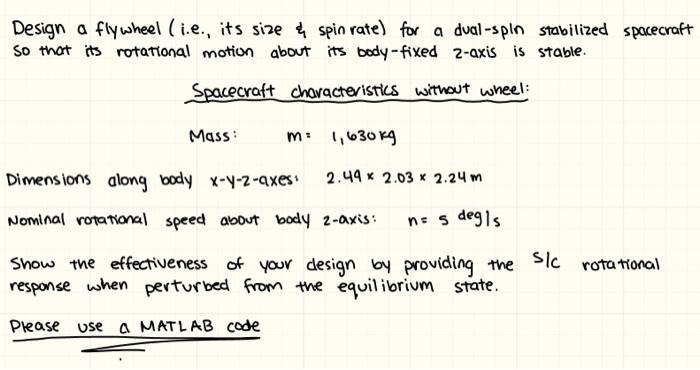 Design a flywheel (i.e., its size & spin rate) for a dual-spin stabilized spacecraft
So that its rotational motion about its body-fixed z-axis is stable.
Spacecraft characteristics without wheel:
Mass: m= 1,630 kg
Dimensions along body x-y-z-axes: 2.49 x 2.03 x 2.24 m
Nominal rotational speed about body z-axis: n= 5 deg/s
Show the effectiveness of your design by providing the s/c rotational
response when perturbed from the equilibrium state.
Please use a MATLAB code